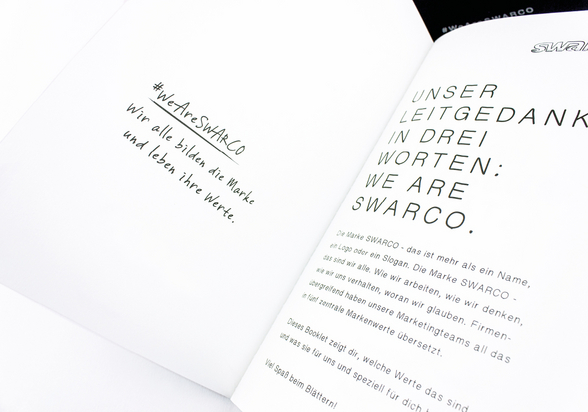 #WeAreSWARCO
Wir alle bilden die Marke
und leben ihre Werte.
#WeAreSWARCO
UNSER
LEITGEDANK
IN DREI
WORTEN:
WE ARE
SWARCO.
Die Marke SWARCO - das ist mehr als ein Name,
ein Logo oder ein Slogan. Die Marke SWARCO -
das sind wir alle. Wie wir arbeiten, wie wir denken,
wie wir uns verhalten, woran wir glauben. Firmen-
übergreifend haben unsere Marketingteams all das
in fünf zentrale Markenwerte übersetzt.
Dieses Booklet zeigt dir, welche Werte das sind
und was sie für uns und speziell für dich
Viel Spaß beim Blättern!